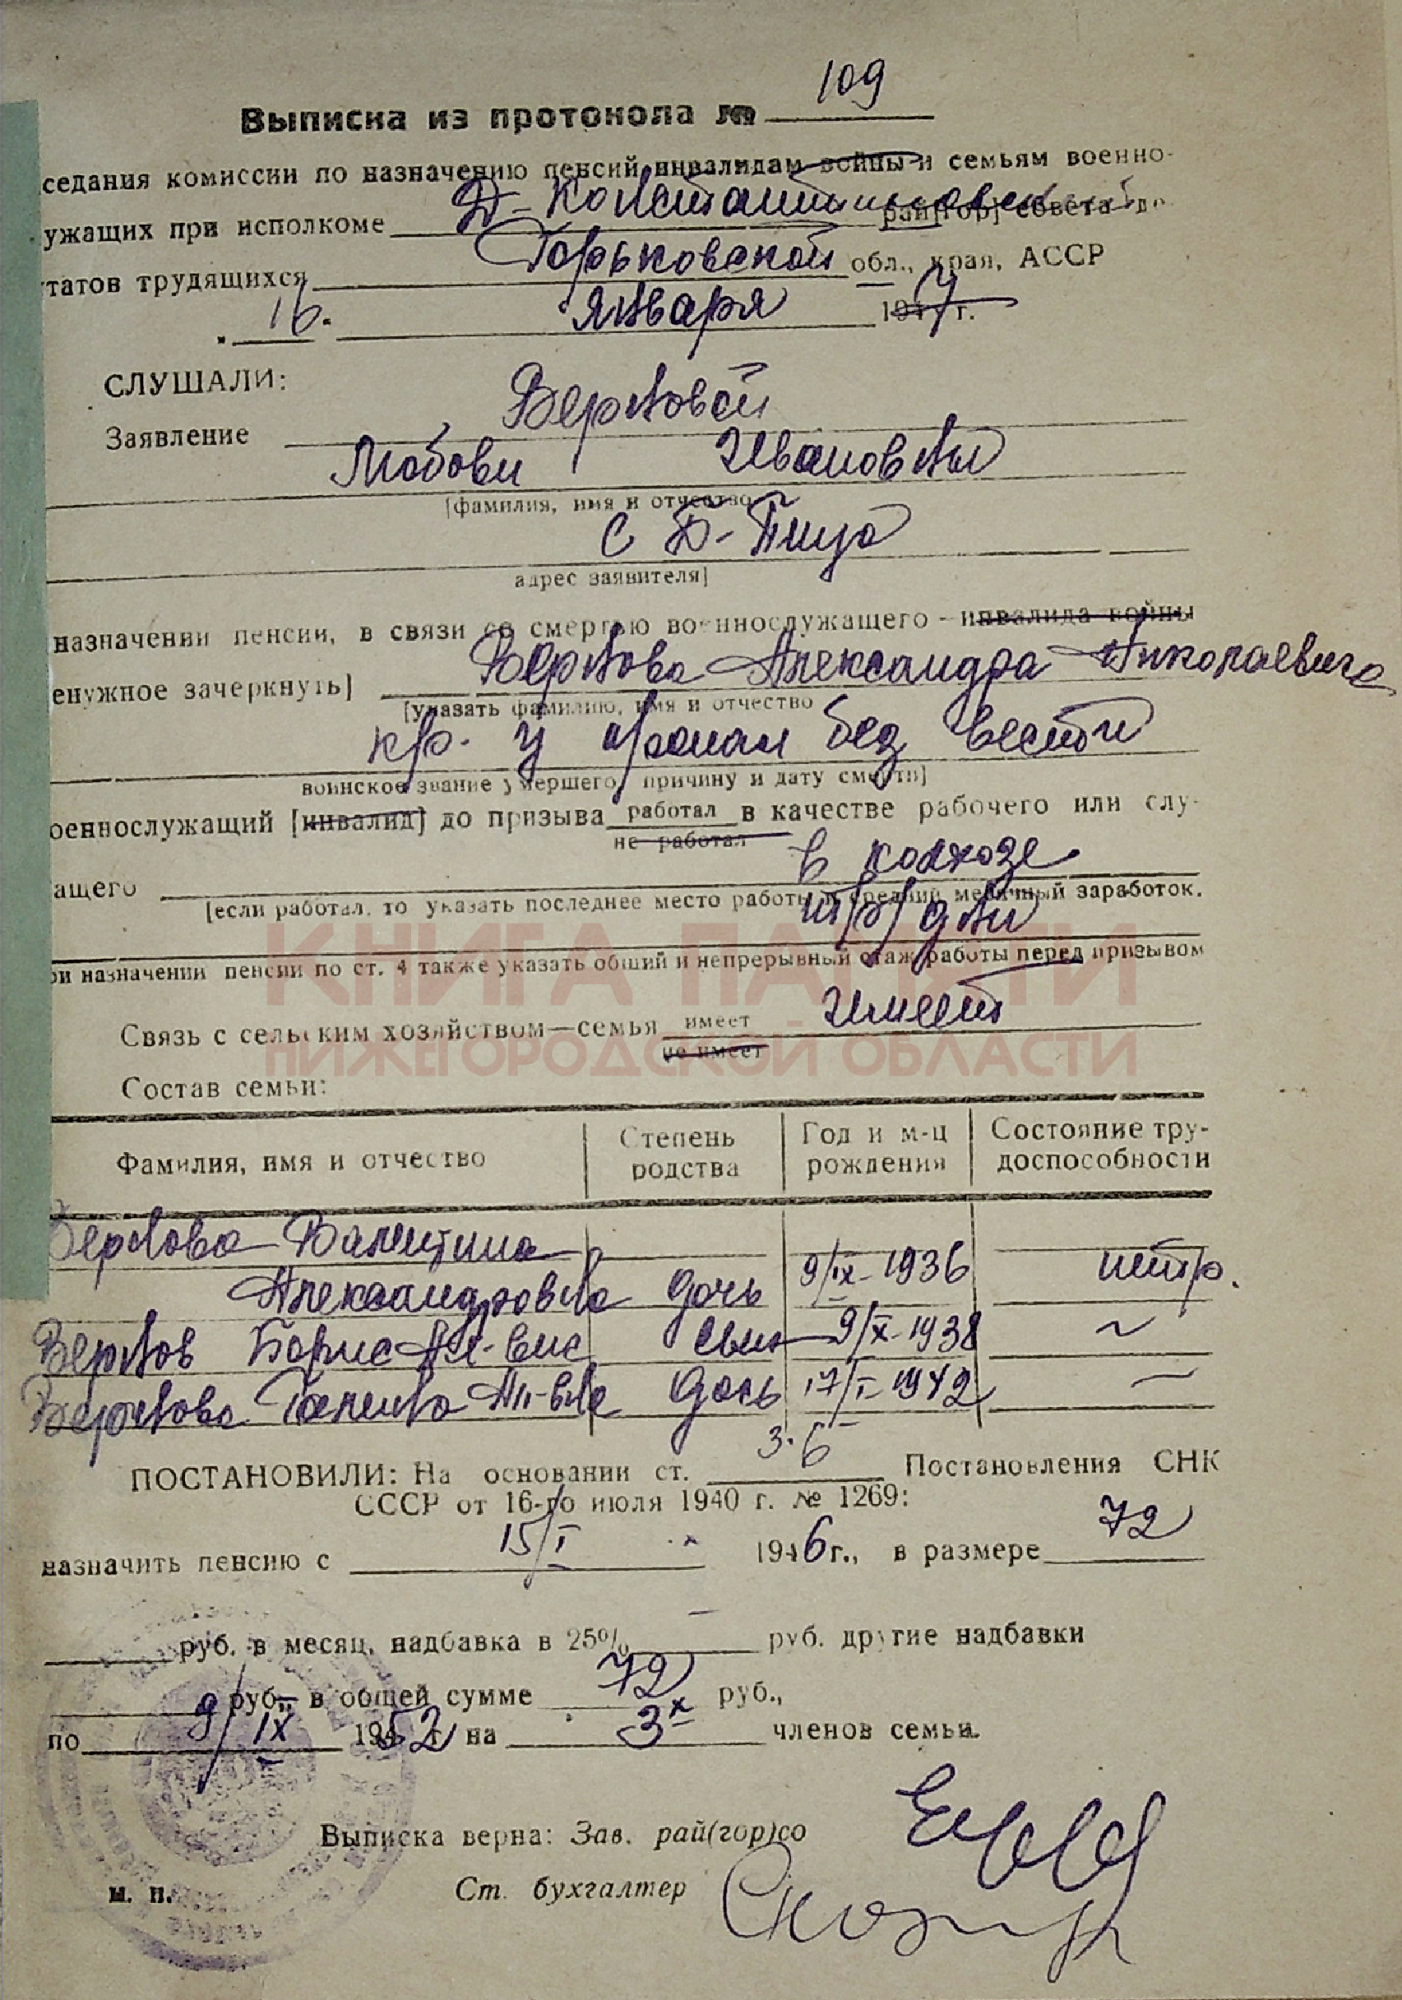 Выписка из протокола № 109
седания комиссии по назначению пенсий инвалидам войны и семьям военно-
ужащих при исполкоме Д-Константиновск рай[гор] совета де
татов трудящихся Горьковской обл., края, АССР
"16" января 1947 г.
СЛУШАЛИ:
Заявление Верховой
Любови Ивановны
[фамилия, имя и отчество
с Д-Пица
адрес заявителя]
назначении пенсии, в связи со смертью военнослужащего - инвалида войны
енужное зачеркнуть] Верхова Александра Николаевича
[указать фамилию, имя и отчество
кр-ц пропал без вести
воинское звание умершего, причину и дату смерти]
оеннослужащий [инвалид] до призыва работал в качестве рабочего или слу-
не работал
ащего в колхозе
[если работал, то указать последнее место работы и средний месячный заработок.
тр/дни
ри назначении пенсии по ст. 4 также указать общий и непрерывный стаж работы перед призывом
КНИГА ПАМЯТИ
НИЖЕГОРОДСКОЙ ОБЛАСТИ
Связь с сельским хозяйством—семья имеет имеет
не имеет
Состав семьи:
Фамилия, имя и отчество Степень родства Год и м-ц рождения Состояние тру-доспособности
Верхова Валентина
Александровна дочь 9/IX-1936 нетр.
Верхов Борис Ал-вич сын 9/X-1938 ~
Верхова Галина Ал-вна дочь 17/I-1942 ~
ПОСТАНОВИЛИ: На основании ст. 3.6 Постановления СНК
СССР от 16-го июля 1940 г. № 1269:
назначить пенсию с 15/I 1946 г., в размере 72
руб. в месяц, надбавка в 25% — руб. другие надбавки
руб., в общей сумме 72 руб.,
по 9/IX 1952 г. на 3х членов семьи.
Выписка верна: Зав. рай(гор)со
м. п. Ст. бухгалтер